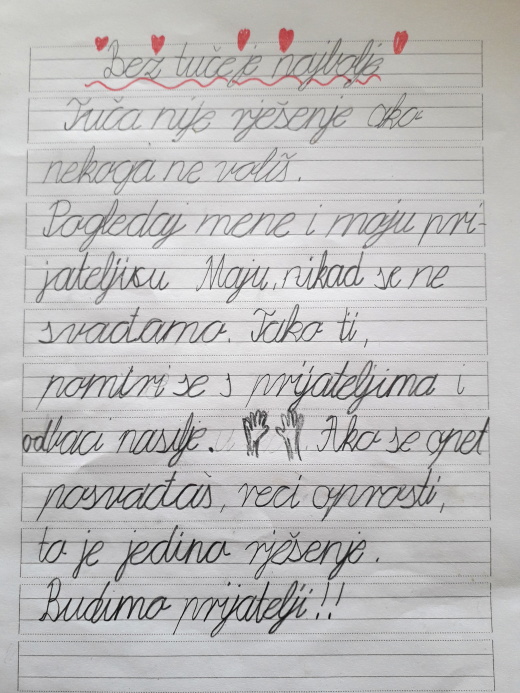 Bez tuče je najbolje
Tuča nije rješenje ako
nekoga ne voliš.
Pogledaj mene i moju pri-
jateljicu Maju, nikad se ne
svađamo. Tako ti,
pomiri se s prijateljima i
odbaci nasilje. Ako se opet
posvađaš, reci oprosti,
to je jedino rješenje.
Budimo prijatelji!!